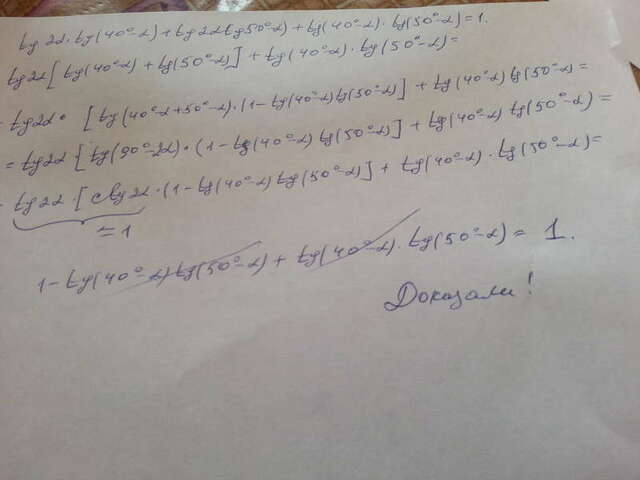 tg2α·tg(40°-α)+tg2αtg50°-α)+tg(40°-α)·tg(50°-α)=1.
tg2α[tg(40°-α)+tg(50°-α)]+tg(40°-α)·tg(50°-α)=
= tg2α· [tg(40°-α+50°-α)·(1-tg(40°-α)tg(50°-α)]+tg(40°-α)tg(50°-α)=
= tg2α[tg(90°-2α)·(1-tg(40°-α)tg(50°-α)]+tg(40°-α)tg(50°-α)=
= tg2α·[ctg2α·(1-tg(40°-α)tg(50°-α)]+tg(40°-α)·tg(50°-α)=
=1
1-tg(40°-α)tg(50°-α)+tg(40°-α)·tg(50°-α)= 1.
Доказали!